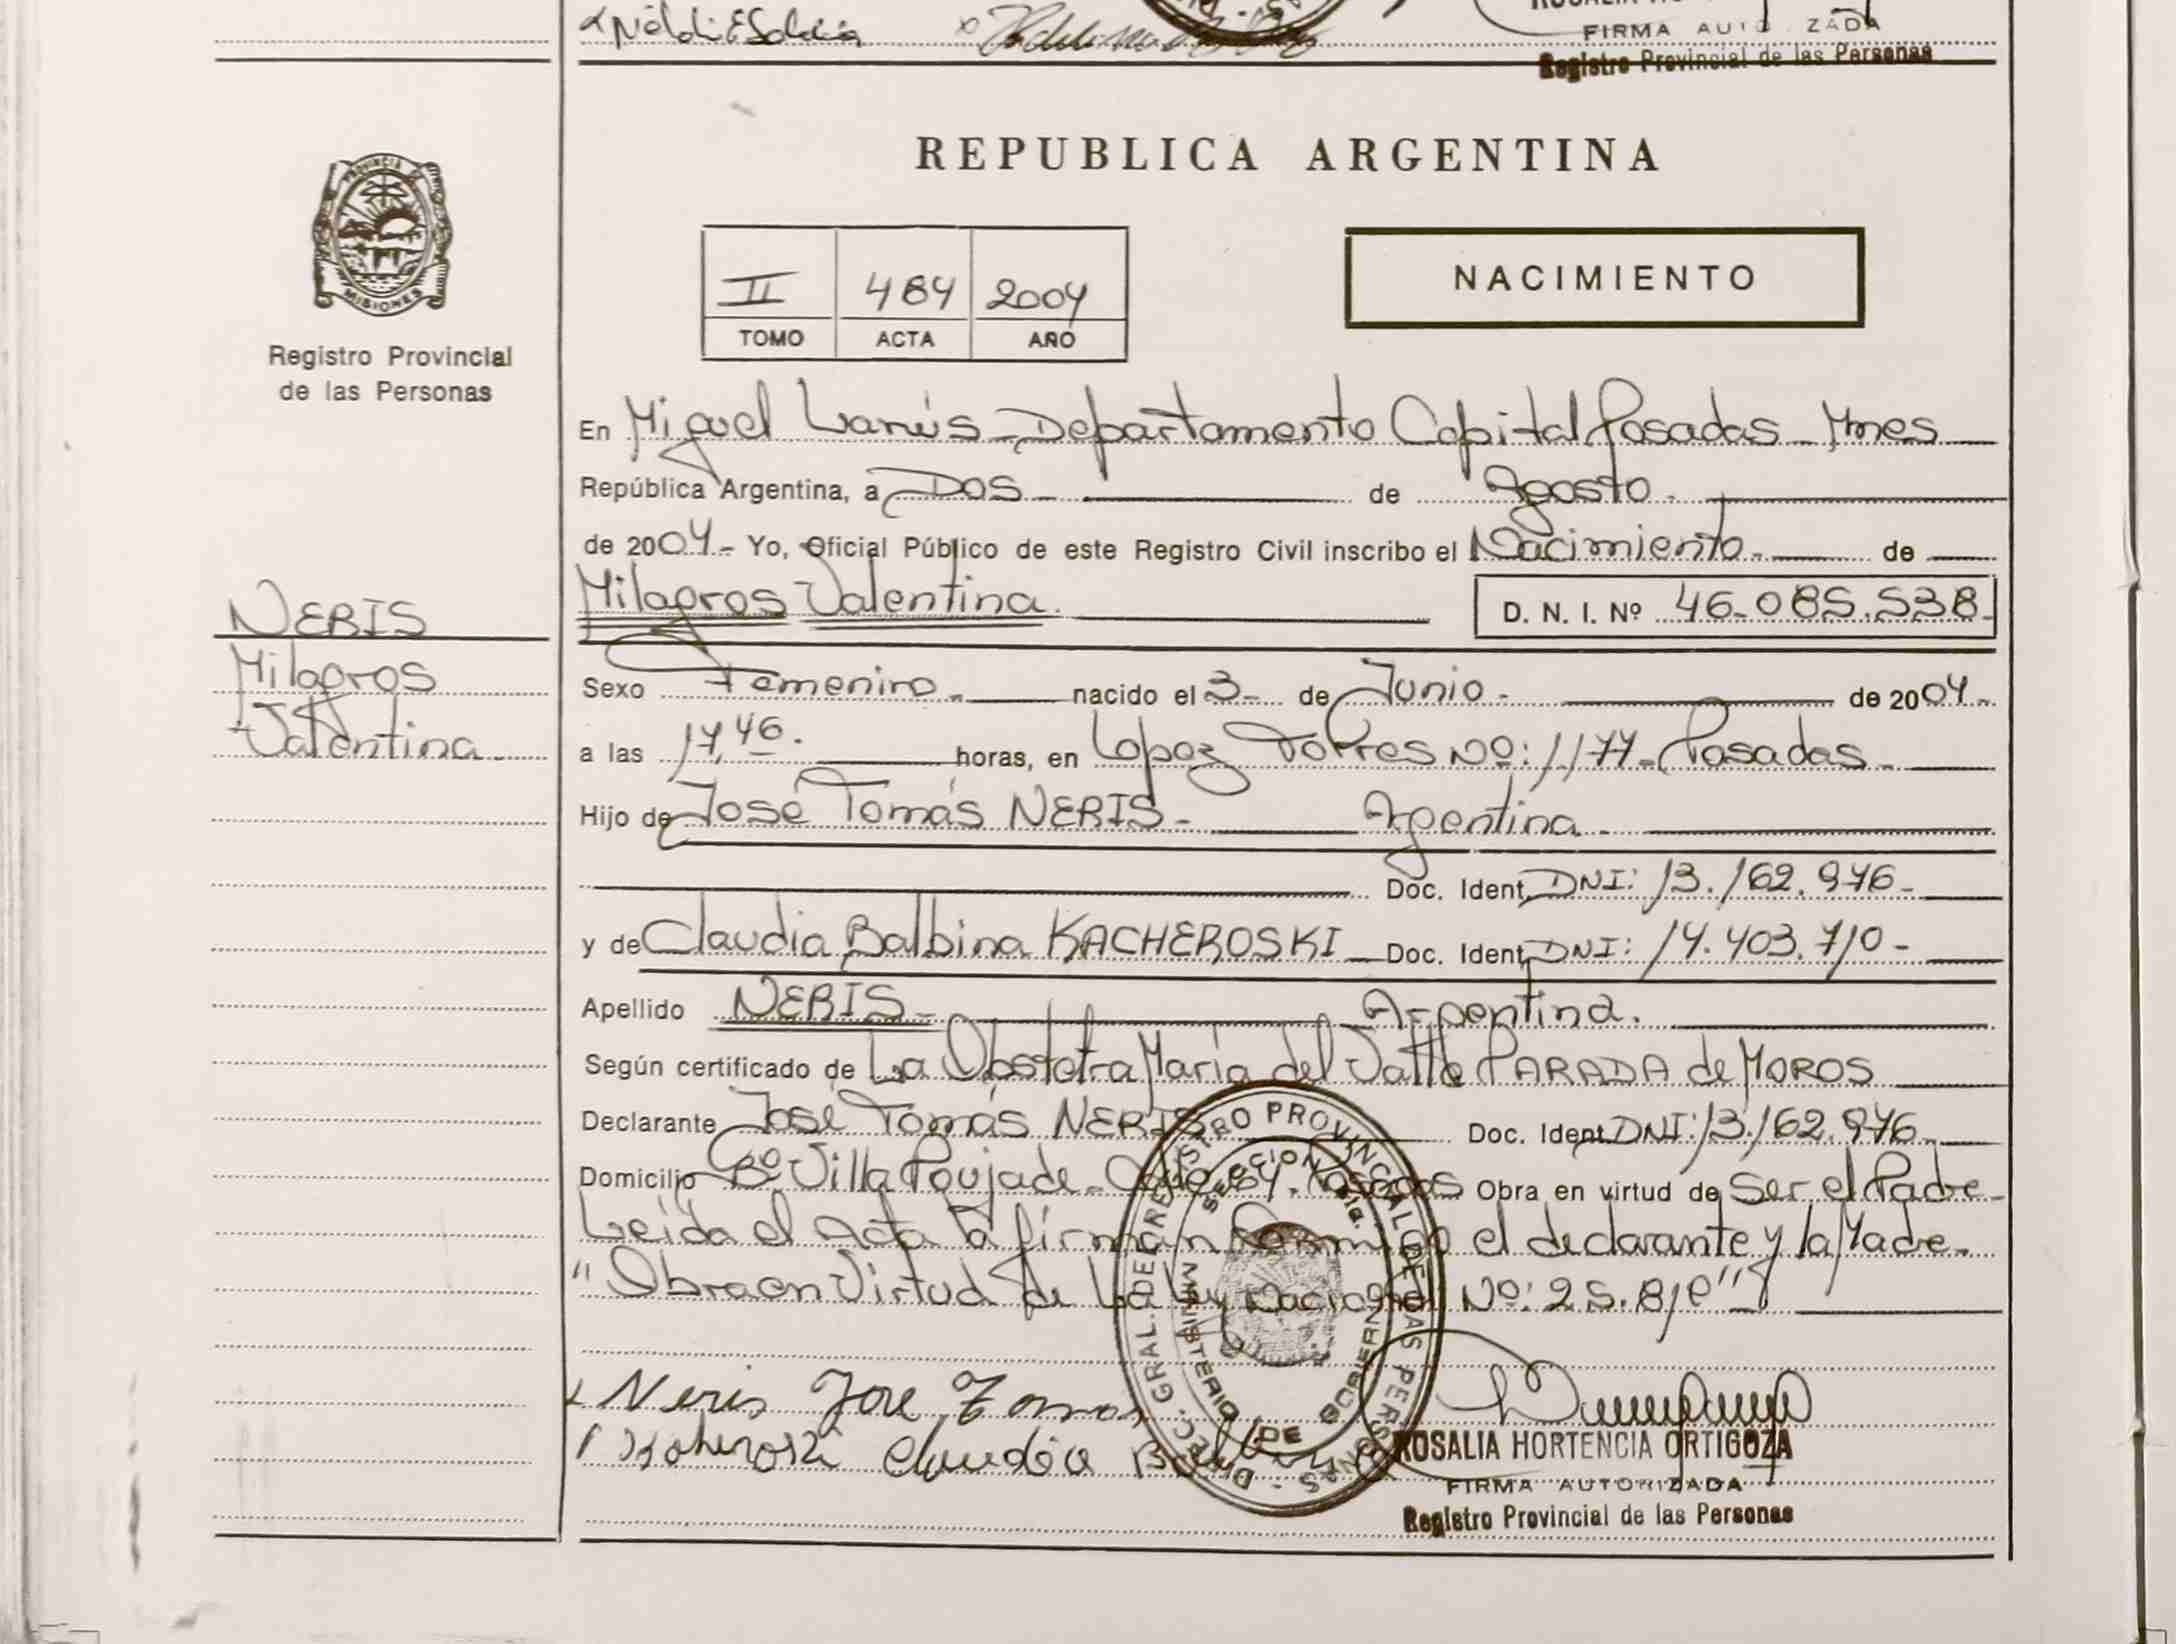 FIRMA AUTO ZADA
Registro Provincial de las Personas
REPUBLICA ARGENTINA
PROVINCIA DE
MISIONES
Registro Provincial
de las Personas
II 484 2004
TOMO ACTA AÑO
NACIMIENTO
En Miguel Lanús - Departamento Capital Posadas - Mnes
República Argentina, a Dos - de Agosto -
de 2004 - Yo, Oficial Público de este Registro Civil inscribo el Nacimiento - de
Milagros Valentina.
D. N. I. Nº 46.085.538 -
NERIS
Milagros
Valentina
Sexo Femenino - nacido el 3 - de Junio - de 2004 -
a las 17,46. horas, en Lopez Torres Nº: 1177 - Posadas -
Hijo de José Tomás NERIS - Argentina -
Doc. Ident. DNI: 13.162.976 -
y de Claudia Balbina KACHEROSKI - Doc. Ident. DNI: 14.403.710 -
Apellido NERIS - Argentina.
Según certificado de La Obstetra María del Valle PARADA de MOROS
Declarante José Tomás NERIS Doc. Ident. DNI: 13.162.976 -
Domicilio Bº Villa Poujade - Posadas Obra en virtud de Ser el Padre -
Leida el Acta la firman el declarante y la Madre -
"Obra en Virtud de La Ley Nacional Nº: 25.819"
Neris José Tomas
Claudia
DIREC. GRAL. DEL REGISTRO PROVINCIAL DE LAS PERSONAS -
SECCION
MINISTERIO DE GOBIERNO
ROSALIA HORTENCIA ORTIGOZA
FIRMA AUTORIZADA
Registro Provincial de las Personas